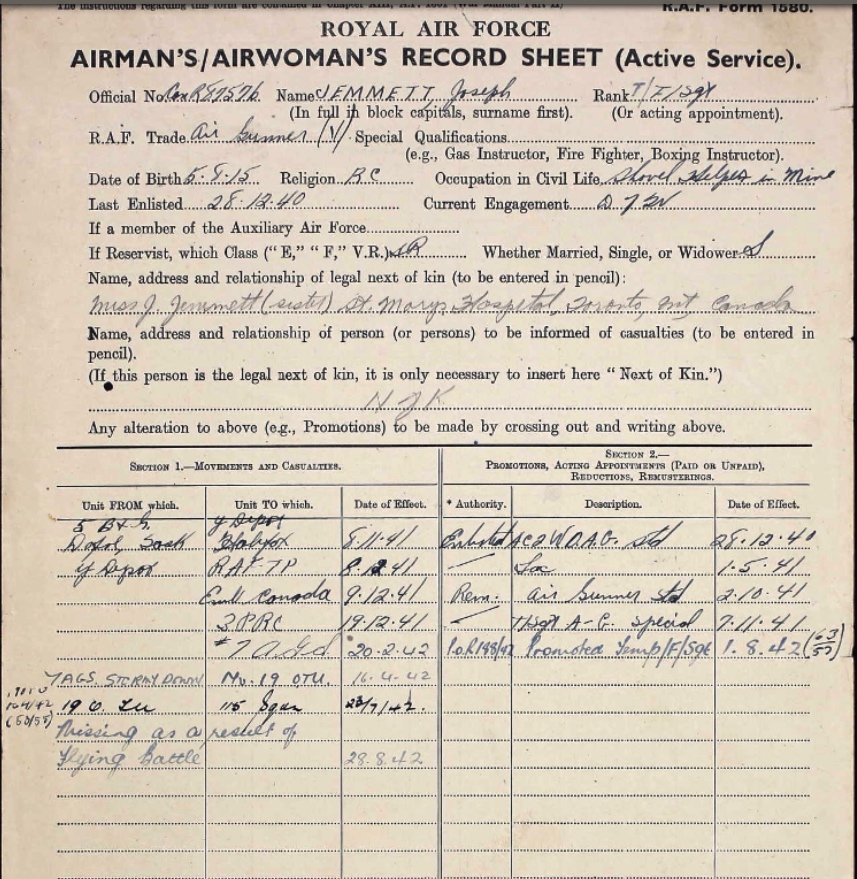 The instructions regarding this form are contained in Chapter XIII, A.P. 1301 (War Manual Part II)
R.A.F. Form 1580.
ROYAL AIR FORCE
AIRMAN'S/AIRWOMAN'S RECORD SHEET (Active Service).
Official No. Can R87576 Name JEMMETT, Joseph Rank T/F/Sgt
(In full in block capitals, surname first). (Or acting appointment).
R.A.F. Trade Air Gunner (V) Special Qualifications
(e.g., Gas Instructor, Fire Fighter, Boxing Instructor).
Date of Birth 5.8.15 Religion RC Occupation in Civil Life Shovel Helper in Mine
Last Enlisted 28.12.40 Current Engagement D of W
If a member of the Auxiliary Air Force
If Reservist, which Class ("E," "F," V.R.) SR Whether Married, Single, or Widower S
Name, address and relationship of legal next of kin (to be entered in pencil):
Miss J. Jemmett (sister) St. Marys Hospital, Toronto, Ont, Canada
Name, address and relationship of person (or persons) to be informed of casualties (to be entered in
pencil).
(If this person is the legal next of kin, it is only necessary to insert here "Next of Kin.")
N of K
Any alteration to above (e.g., Promotions) to be made by crossing out and writing above.
SECTION 1.—MOVEMENTS AND CASUALTIES.
SECTION 2.—
PROMOTIONS, ACTING APPOINTMENTS (PAID OR UNPAID),
REDUCTIONS, REMUSTERINGS.
Unit FROM which. Unit TO which. Date of Effect. * Authority. Description. Date of Effect.
5 B & G. Y Depot
Dafoe, Sask Halifax 8.11.41 Enlisted AC2 W.O.A.G. Std 28.12.40
Y Depot RAF TP 8.12.41 Lac 1.5.41
Emb Canada 9.12.41 Rem. Air Gunner Std 2.10.41
3 PRC 19.12.41 T/Sgt A-G. Special 7.11.41
#7 AGS 20.2.42 P.O.R 188/42 Promoted Temp/F/Sgt 1.8.42 (63/57)
7 AGS. STORMY DOWN No. 19 OTU. 16.4.42
19 O.T.U 115 Sqdn 23/7/42.
(50/58)
Missing as a result of
Flying Battle 28.8.42